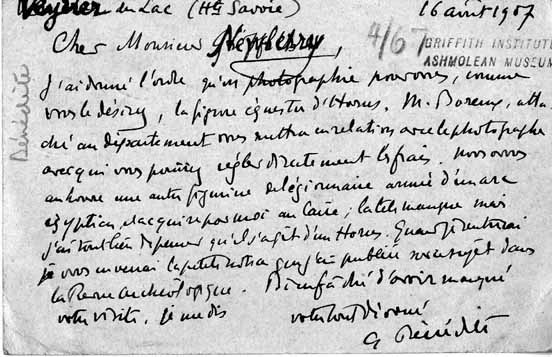 Veyrier du Lac (Hte Savoie) 16 août 1907
Cher Monsieur Newberry,
4/67
GRIFFITH INSTITUTE
ASHMOLEAN MUSEUM
Bénédite
J'ai donné l'ordre qu'on photographie pour vous, comme
vous le désirez, la figure équestre d'Horus. M. Boreux, atta
ché au département vous mettra en relation avec le photographe
avec qui vous pourrez régler directement les frais. Nous avons
au Louvre une autre figurine de légionnaire armée
égyptien, acquise par moi au Caire ; la tête manque mais
j'ai tout lieu de penser qu'il s'agit d'un Horus. Quand je rentrerai
je vous enverrai la petite notice que j'ai publiée sur ce sujet dans
la Revue archéologique. Bien fâché d'avoir manqué
votre visite, je me dis votre tout dévoué
G Bénédite